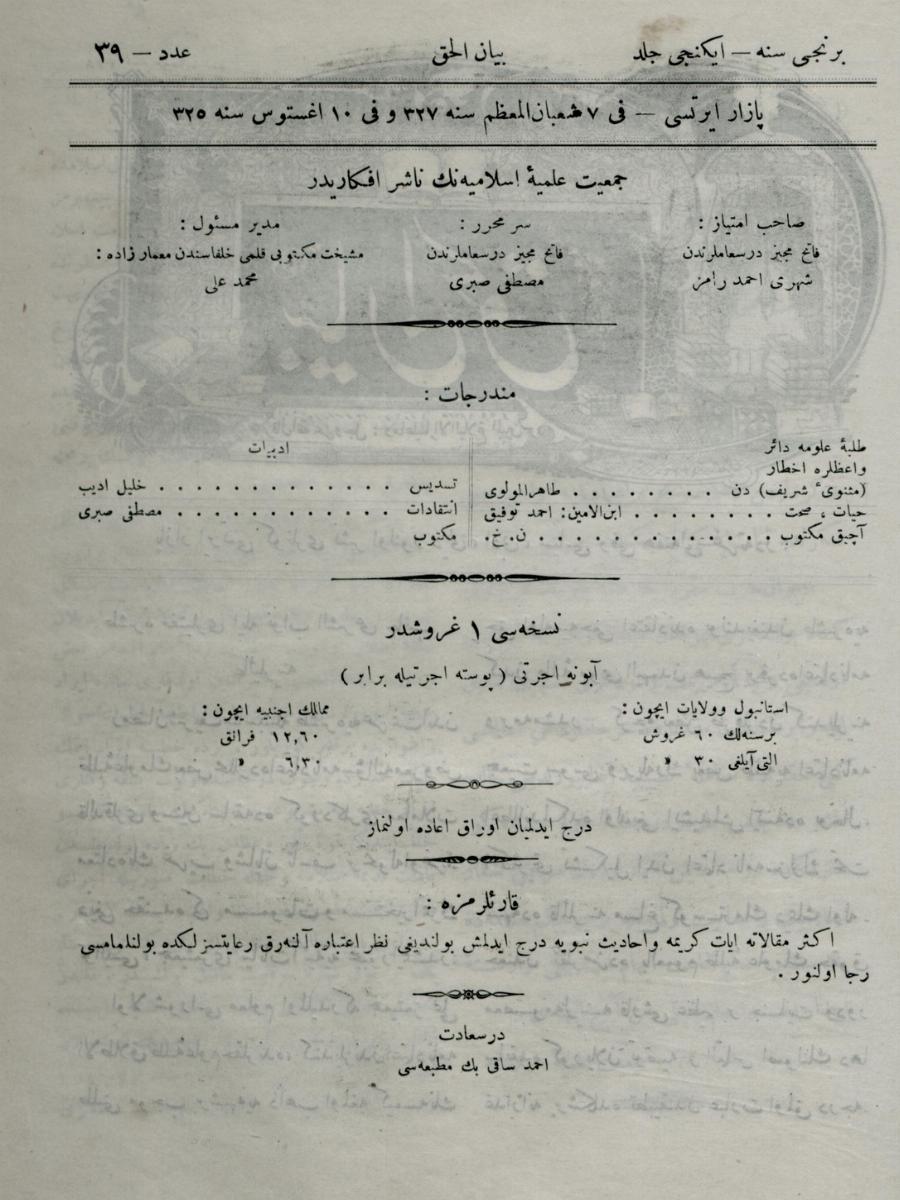 برنجی سنه — ایکنجی جلد
بیان الحق
عدد — ٣٩
پازار ایرتسی — فی ٧ شعبان‌المعظم سنه ٣٢٧ و فی ١٠ اغستوس سنه ٣٢٥
جمعیت علمیهٔ اسلامیه‌نك ناشر افکاریدر
صاحب امتیاز :
فاتح مجیز درسعاملرندن
شهری احمد رامز
سر محرر :
فاتح مجیز درسعاملرندن
مصطفی صبری
مدیر مسئول :
مشیخت مکتوبی قلمی خلفاسندن معمار زاده :
محمد علی
مندرجات :
طلبهٔ علومه دائر
واعظلره اخطار
(مثنویٔ شریف) دن . . . . . . . . طاهرالمولوی
حیات ، صحت . . . . . . . ابن‌الامین: احمد توفیق
آچیق مکتوب . . . . . . . . . . . . ن . خ .
ادبیات
تسدیس . . . . . . . . . . . . . خلیل ادیب
انتقادات . . . . . . . . . . . . مصطفی صبری
مکتوب
نسخه‌سی ١ غروشدر
آبونه اجرتی ( پوسته اجرتیله برابر )
استانبول وولایات ایچون :
برسنه‌لك ٦٠ غروش
التی‌آیلغی ٣٠ »
ممالك اجنبیه ایچون :
١٢,٦٠ فرانق
٦,٣٠ »
درج ایدلمیان اوراق اعاده اولنماز
قارئلرمزه :
اکثر مقالاته ایات کریمه واحادیث نبویه درج ایدلمش بولندیغی نظر اعتباره آلنه‌رق رعایتسزلکده بولنلمامسی
رجا اولنور .
درسعادت
احمد ساقی بك مطبعه‌سی